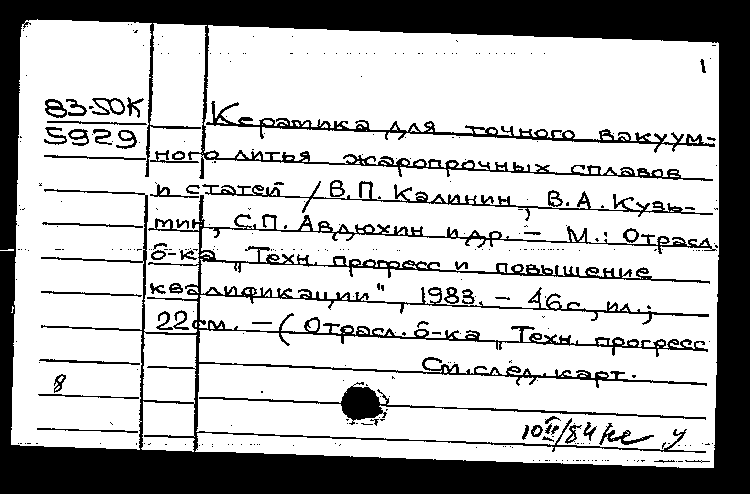 1
83-50К
5929
Керамика для точного вакуум-
ного литья жаропрочных сплавов
и статей / В.П. Калинин, В.А. Кузь-
мин, С.П. Авдюхин и др. – М.: Отрасл.
б-ка „Техн. прогресс и повышение
квалификации", 1983. – 46с., ил.;
22см. – (Отрасл. б-ка „Техн. прогресс
См. след. карт.
8